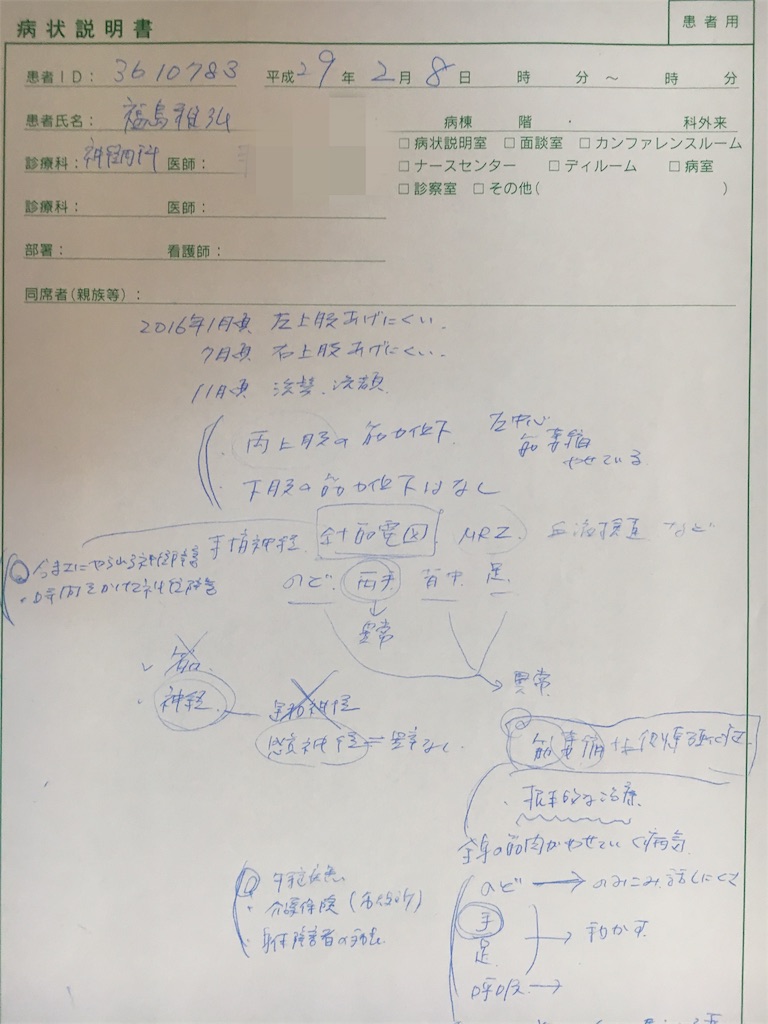 病状説明書
患者用
患者ID: 3610783 平成29年2月8日 時 分～ 時 分
患者氏名:
病棟 階 ・ 科外来
□病状説明室 □面談室 □カンファレンスルーム
診療科:神経内科 医師:
□ナースセンター □ディルーム □病室
□診察室 □その他( )
診療科: 医師:
部署: 看護師:
同席者(親族等):
2016年1月頃 左上肢あげにくい.
7月頃 右上肢あげにくい..
11月頃 洗髪、洗顔
・両上肢の筋力低下 左中心
筋萎縮
やせている
・下肢の筋力低下はなし
針筋電図 MRI. 血液検査 など
のど. 両手 背中 足.
異常
異常
筋.
神経
運動神経
感覚神経 = 異常なし.
筋萎縮性側索硬化症
・根本的な治療
全身の筋肉がやせていく病気
・介護保険
のど → のみこみ.話しにくさ
手
足 → 動かす
呼吸 →